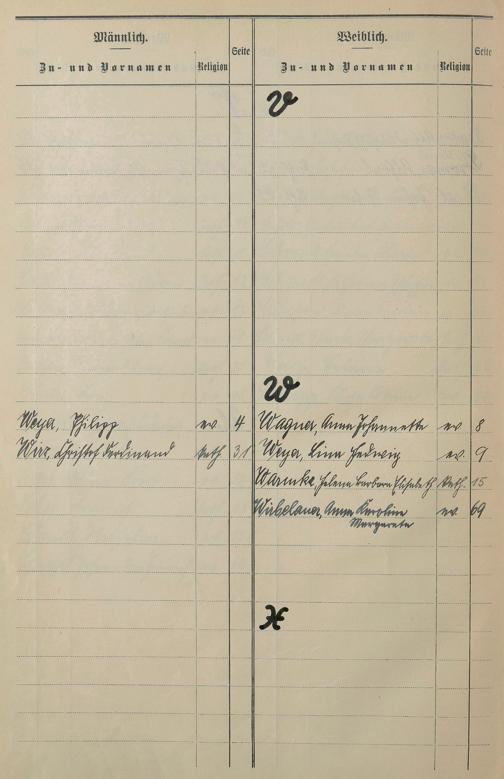 Männlich.
Seite
Weiblich.
Seite
Zu- und Vornamen
Religion
Zu- und Vornamen
Religion
V
W
Weya, Philipp ev 4 Wagner, Anna Johannette ev 8
Wirx, Christof Ferdinand kath 31 Weya, Lina Hedwig ev. 9
Warmke, Helena Barbara Elisabeth kath. 15
Anna Karoline ev. 69
Margareta
X